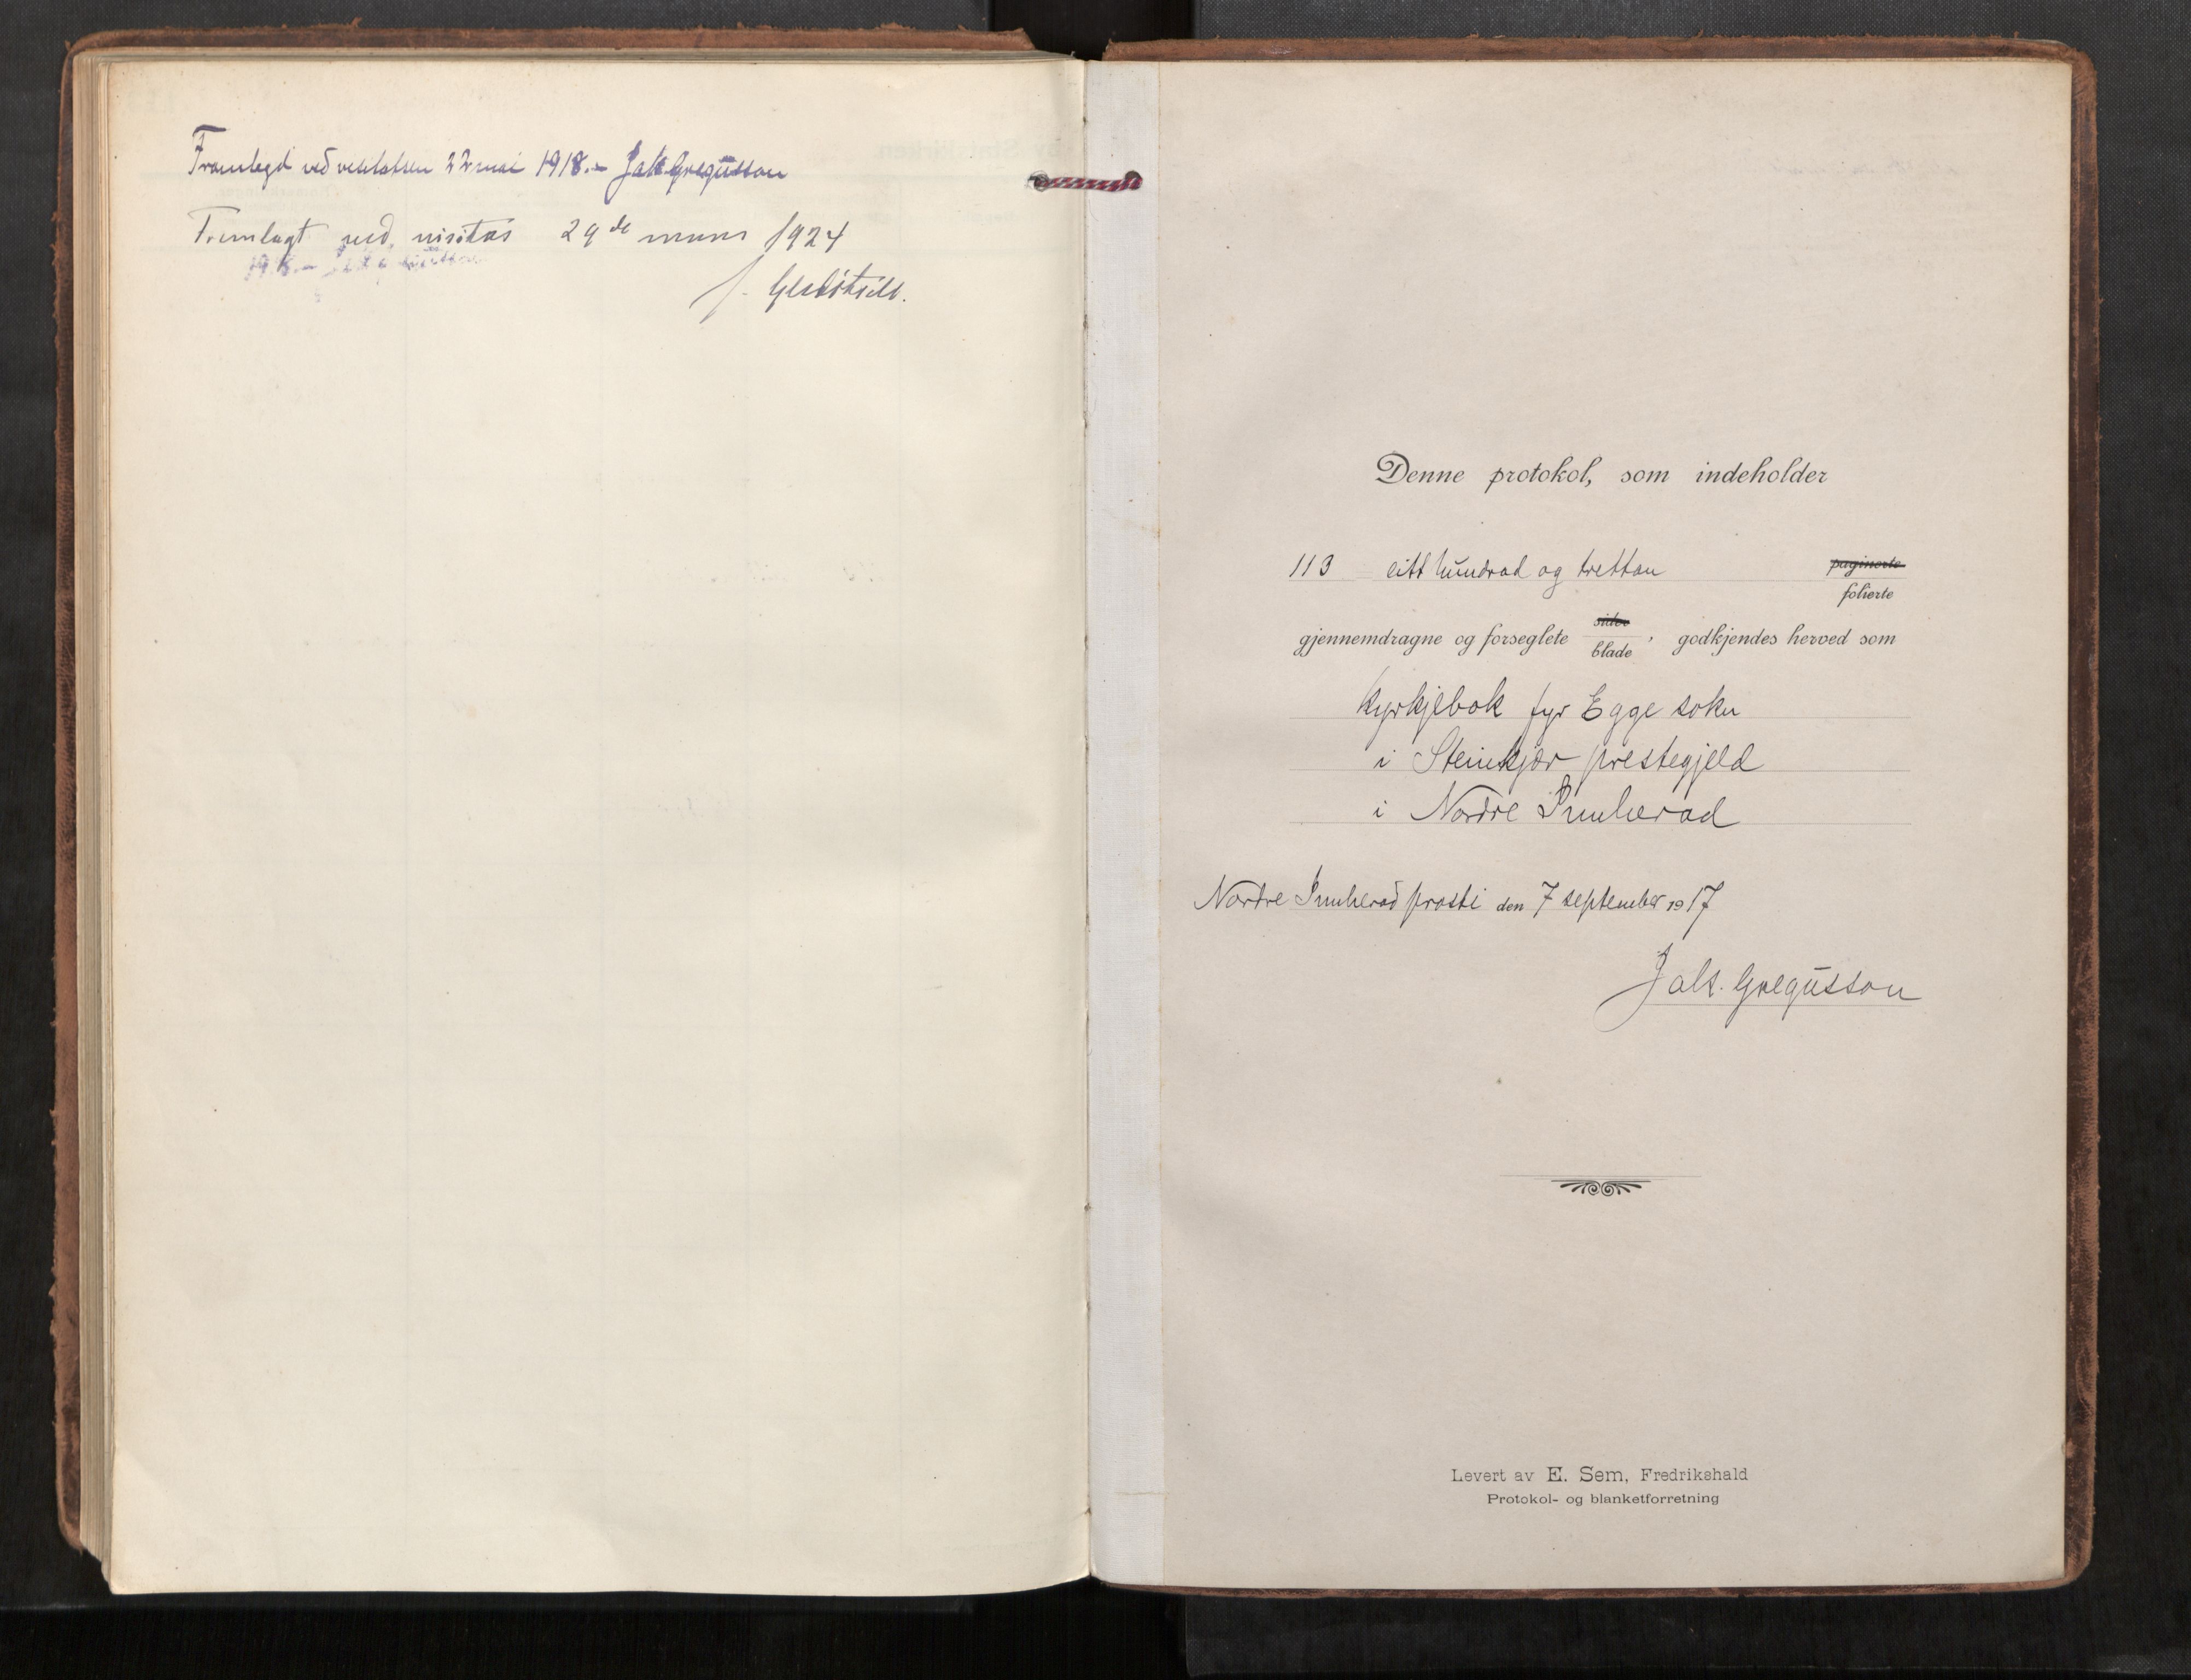 Framlegd ved visitatsen 22 mai 1918. – Jak Gregusson
Fremlagt ved visitas 29de mars 1924
J.
Denne protokol, som indeholder
113 eitt hundrad og trettan paginerte
folierte
gjennemdragne og forseglete sider
blade, godkjendes herved som
Kyrkjebok fyr Egge sokn
i Steinkjær prestegjeld
i Nordre Innherad
Nordre Innherad prosti den 7 september 1917
Jak. Gregusson
Levert av E. Sem, Fredrikshald
Protokol- og blanketforretning